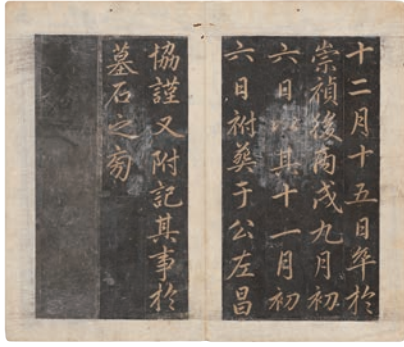 十二月十五日卒於
崇禎後丙戌九月初
六日以其十一月初
六日祔葬于公左昌
協謹又附記其事於
墓石之旁